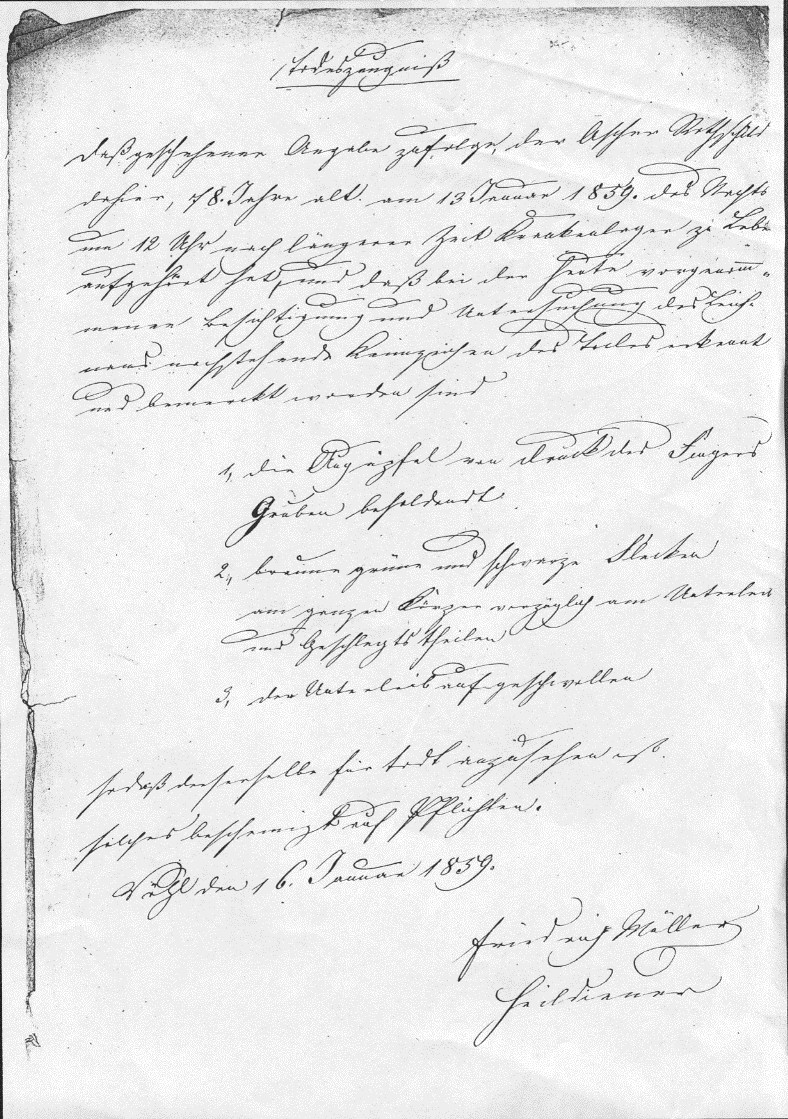 Todeszeugniß
Daß geschehener Angabe zufolge, der Ascher Rothschild
dahier, 78. Jahre alt. am 13 Januar 1859. des Nachts
um 12 Uhr nach längerer Zeit Krankenlager zu Leben
aufgehört hat, und daß bei der Heute vorgenom„
menen Besichtigung und Untersuchung des Leich„
nams nachstehende Kennzeichen des Todes erkannt
und bemerckt worden sind
1, die Augäpfel von Druck des Fingers
Gruben behaldendt
2, braune grüne und schwarze Flecken
am ganzen Körper vorzüglich am Unterleib
und Geschlegtstheilen
3, der Unterleib aufgeschwollen
sodaß derserselbe für todt anzusehen ist.
solches bescheinigt auf Pflichten.
Vöhl den 16. Januar 1859.
Friedrich Müller
Heildiener